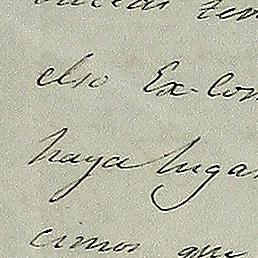 elso Ex-Con
haya lugar
cimos que